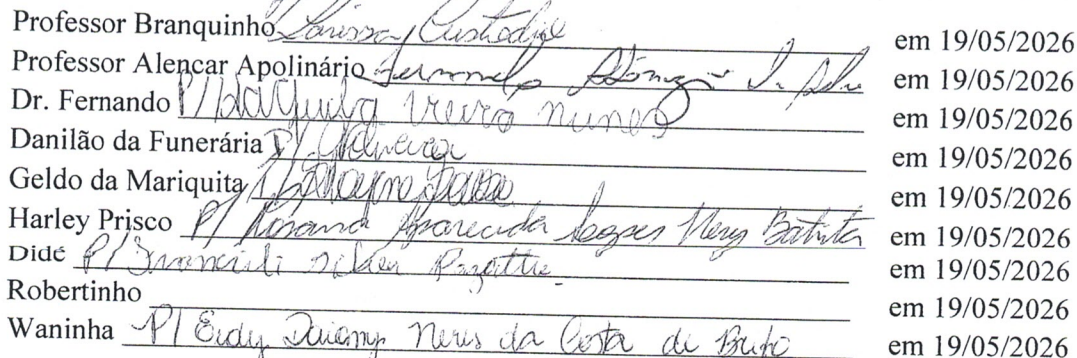 Professor Branquinho P/ Larissa Custodio em 19/05/2026
Professor Alencar Apolinário Fernando em 19/05/2026
Dr. Fernando P/ Vieira Nunes em 19/05/2026
Danilão da Funerária P/ em 19/05/2026
Geldo da Mariquita P/ em 19/05/2026
Harley Prisco P/ Rosana Aparecida Lopes Nery Batista em 19/05/2026
Didé P/ em 19/05/2026
Robertinho em 19/05/2026
Waninha P/ Eidy Daiany Neris da Costa de Brito em 19/05/2026